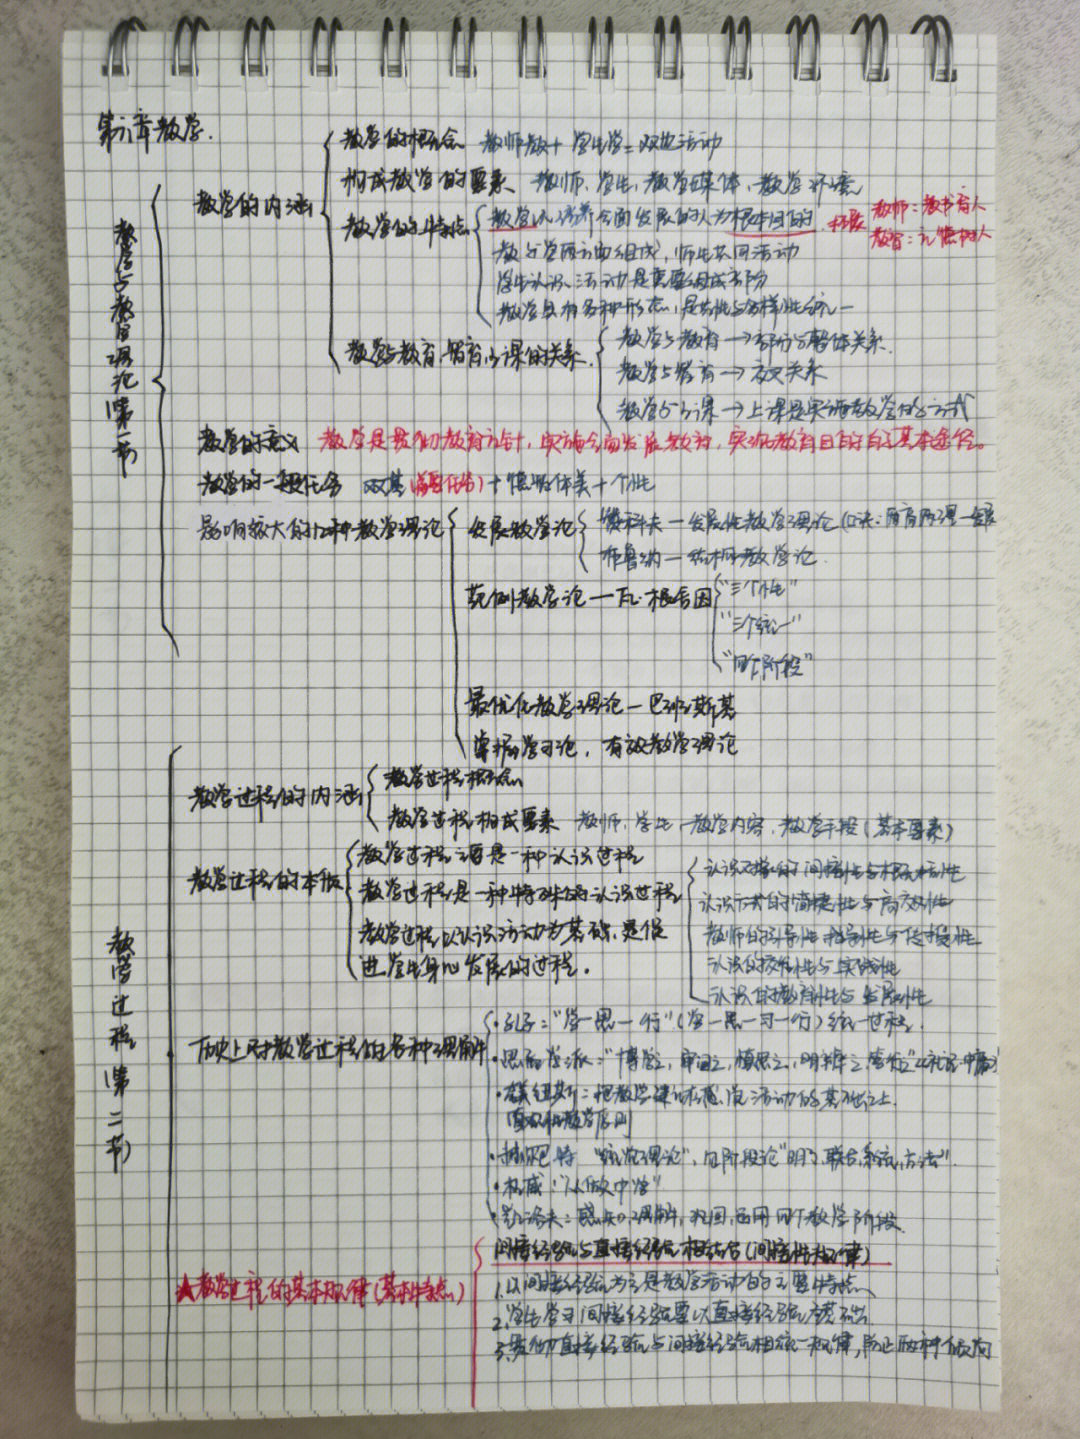 第六章教学.
教学与教学理论(第一节)
教学的内涵
教学的概念 教师教+学生学=双边活动
构成教学的要素 教师、学生、教学媒体、教学环境
教学的特点
教学以培养全面发展的人为根本目的
教师:教书育人
教育:立德树人
教与学两方面组成,师生共同活动
学生认识活动是重要组成部分
教学具有多种形态,是共性与多样性统一
教学与教育、智育、上课的关系
教学与教育→部分与整体关系.
教学与智育→交叉关系
教学与上课→上课是实施教学的方式
教学的意义 教学是贯彻教育方针,实施全面发展教育,实现教育目的的基本途径。
教学的一般任务 双基(首要任务)+德智体美+个性
影响较大的几种教学理论
发展教学论
赞科夫—发展性教学理论
布鲁纳—结构教学论
范例教学论—瓦·根舍因
"三个性"
"三个统一"
"四个阶段"
最优化教学理论—巴班斯基
掌握学习论,有效教学理论
教学过程(第二节)
教学过程的内涵
教学过程概念
教学过程构成要素 教师、学生、教学内容、教学手段(基本要素)
教学过程的本质
教学过程主要是一种认识过程
教学过程是一种特殊的认识过程
认识对象的间接性与概括性
认识方式的简捷性与高效性
教师的引导性、指导性与传授性
认识的交往性与实践性
认识的教育性与发展性
教学过程以认识活动为基础,是促
进学生身心发展的过程.
历史上对教学过程的各种理解
·孔子:"学—思—行"(学—思—习—行)统一过程.
·思孟学派:"博学之,审问之,慎思之,明辨之,笃行之"《礼记·中庸》
·夸美纽斯:把教学建立在感觉活动的基础之上.
直观性教学原则
·赫尔巴特 "统觉理论",四阶段论"明了,联合,系统,方法".
·杜威:"从做中学"
·凯洛夫:感知,理解,巩固,运用四个教学阶段
★教学过程的基本规律(基本特点)
间接经验与直接经验相结合(间接性规律)
1.以间接经验为主是教学活动的主要特点
2.学生学习间接经验要以直接经验为基础
3.贯彻直接经验与间接经验相统一规律,防止两种倾向